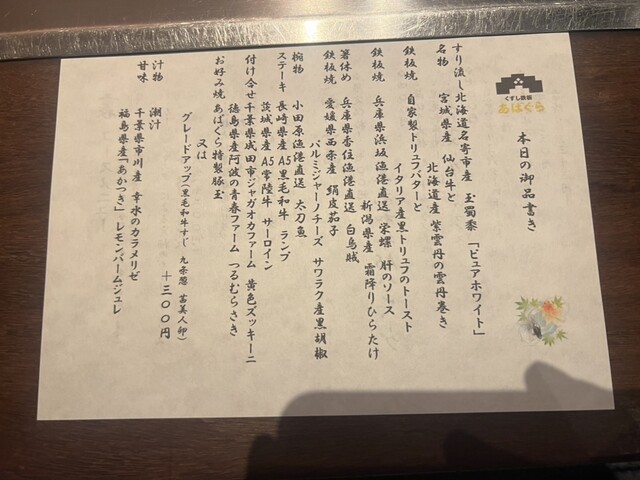 くずし鉄板
あばぐら
本日の御品書き
すり流し 北海道名寄市産 玉蜀黍 「ピュアホワイト」
名物 宮城県産 仙台牛と
北海道産 紫雲丹の雲丹巻き
鉄板焼 自家製トリュフバターと
イタリア産黒トリュフのトースト
鉄板焼 兵庫県浜坂漁港直送 栄螺 肝のソース
新潟県産 霜降りひらたけ
箸休め 兵庫県香住漁港直送 白烏賊
鉄板焼 愛媛県西条産 絹皮茄子
パルミジャーノチーズ サワラク産黒胡椒
椀物 小田原漁港直送 太刀魚
ステーキ 長崎県産 A5黒毛和牛 ランプ
茨城県産 A5常陸牛 サーロイン
付け合せ 千葉県成田市ジャガオカファーム 黄色ズッキーニ
徳島県産阿波の青春ファーム つるむらさき
お好み焼 あばぐら特製豚玉
又は
グレードアップ(黒毛和牛すじ 九条葱 茜美人卵)
+300円
汁物 潮汁
甘味 千葉県市川産 幸水のカラメリゼ
福島県産「あかつき」 レモンバームジュレ